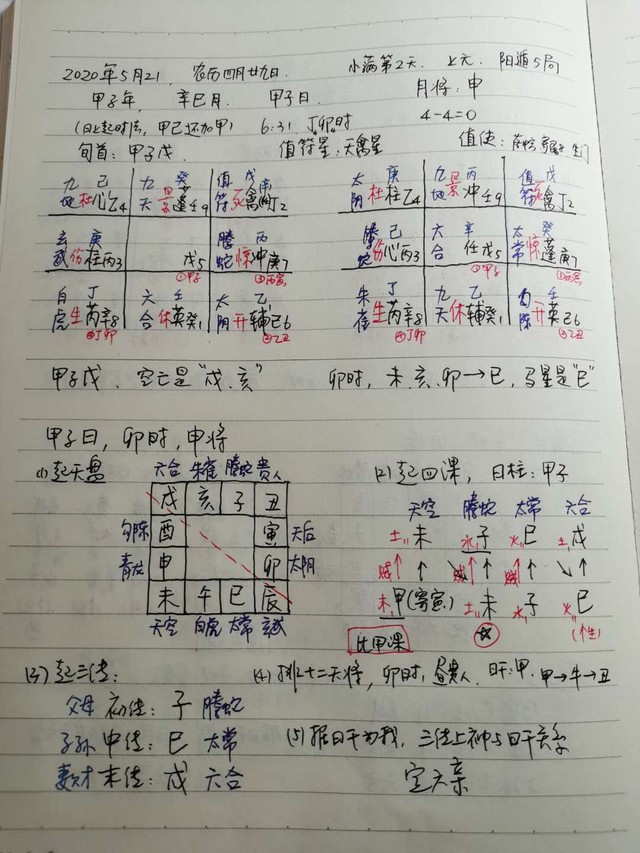 2020年5月21. 农历四月廿九日. 小满第2天. 上元. 阳遁5局
甲子年, 辛巳月, 甲子日. 月将: 申
(日上起时法, 甲己还加甲) 6:31 丁卯时 4-4=0
旬首: 甲子戊. 值符星: 天禽星 值使: 生门
九 己 九 癸 值 戊
地 杜 心 乙4 天 景 蓬 壬9 符 死 禽 丁2
玄 庚 腾 丙
武 伤 柱 丙3 戊5 蛇 惊 冲 庚7
①甲子 ③丙寅
白 丁 六 壬 太 乙
虎 生 芮 辛8 合 休 英 癸1 阴 开 辅 己6
④丁卯 ②乙丑
太 庚 九 丙 值 戊
阴 杜 柱 乙4 地 景 冲 壬9 符 死 禽 丁2
腾 己 六 辛 太 癸
蛇 伤 心 丙3 合 任 戊5 常 惊 蓬 庚7
①甲子 ③丙寅
朱 丁 九 乙 勾 壬
雀 生 芮 辛8 天 休 辅 癸1 陈 开 英 己6
④丁卯 ②乙丑
甲子戊. 空亡是"戌.亥" 卯时, 未.亥.卯→巳, 马星是"巳"
甲子日, 卯时, 申将
(1)起天盘
六合 朱雀 腾蛇 贵人
戌 亥 子 丑
勾陈 酉 寅 天后
青龙 申 卯 太阴
未 午 巳 辰
天空 白虎 太常 玄武
(2)起四课, 日柱: 甲子
天空 腾蛇 太常 六合
土 未 水 子 火 巳 土 戌
贼↑ ↑ 贼↑ ↑ 贼↑ ↑ ↑
木 甲(寄寅) 土 未 水 子 火 巳
比用课 (个生)
(3)起三传:
父母 初传: 子 腾蛇
子孙 中传: 巳 太常
妻财 末传: 戌 六合
(4)排十二天将, 卯时, 昼贵人. 日干: 甲. 甲→牛→丑
(5)据日干为我, 三传上神与日干关系
定六亲